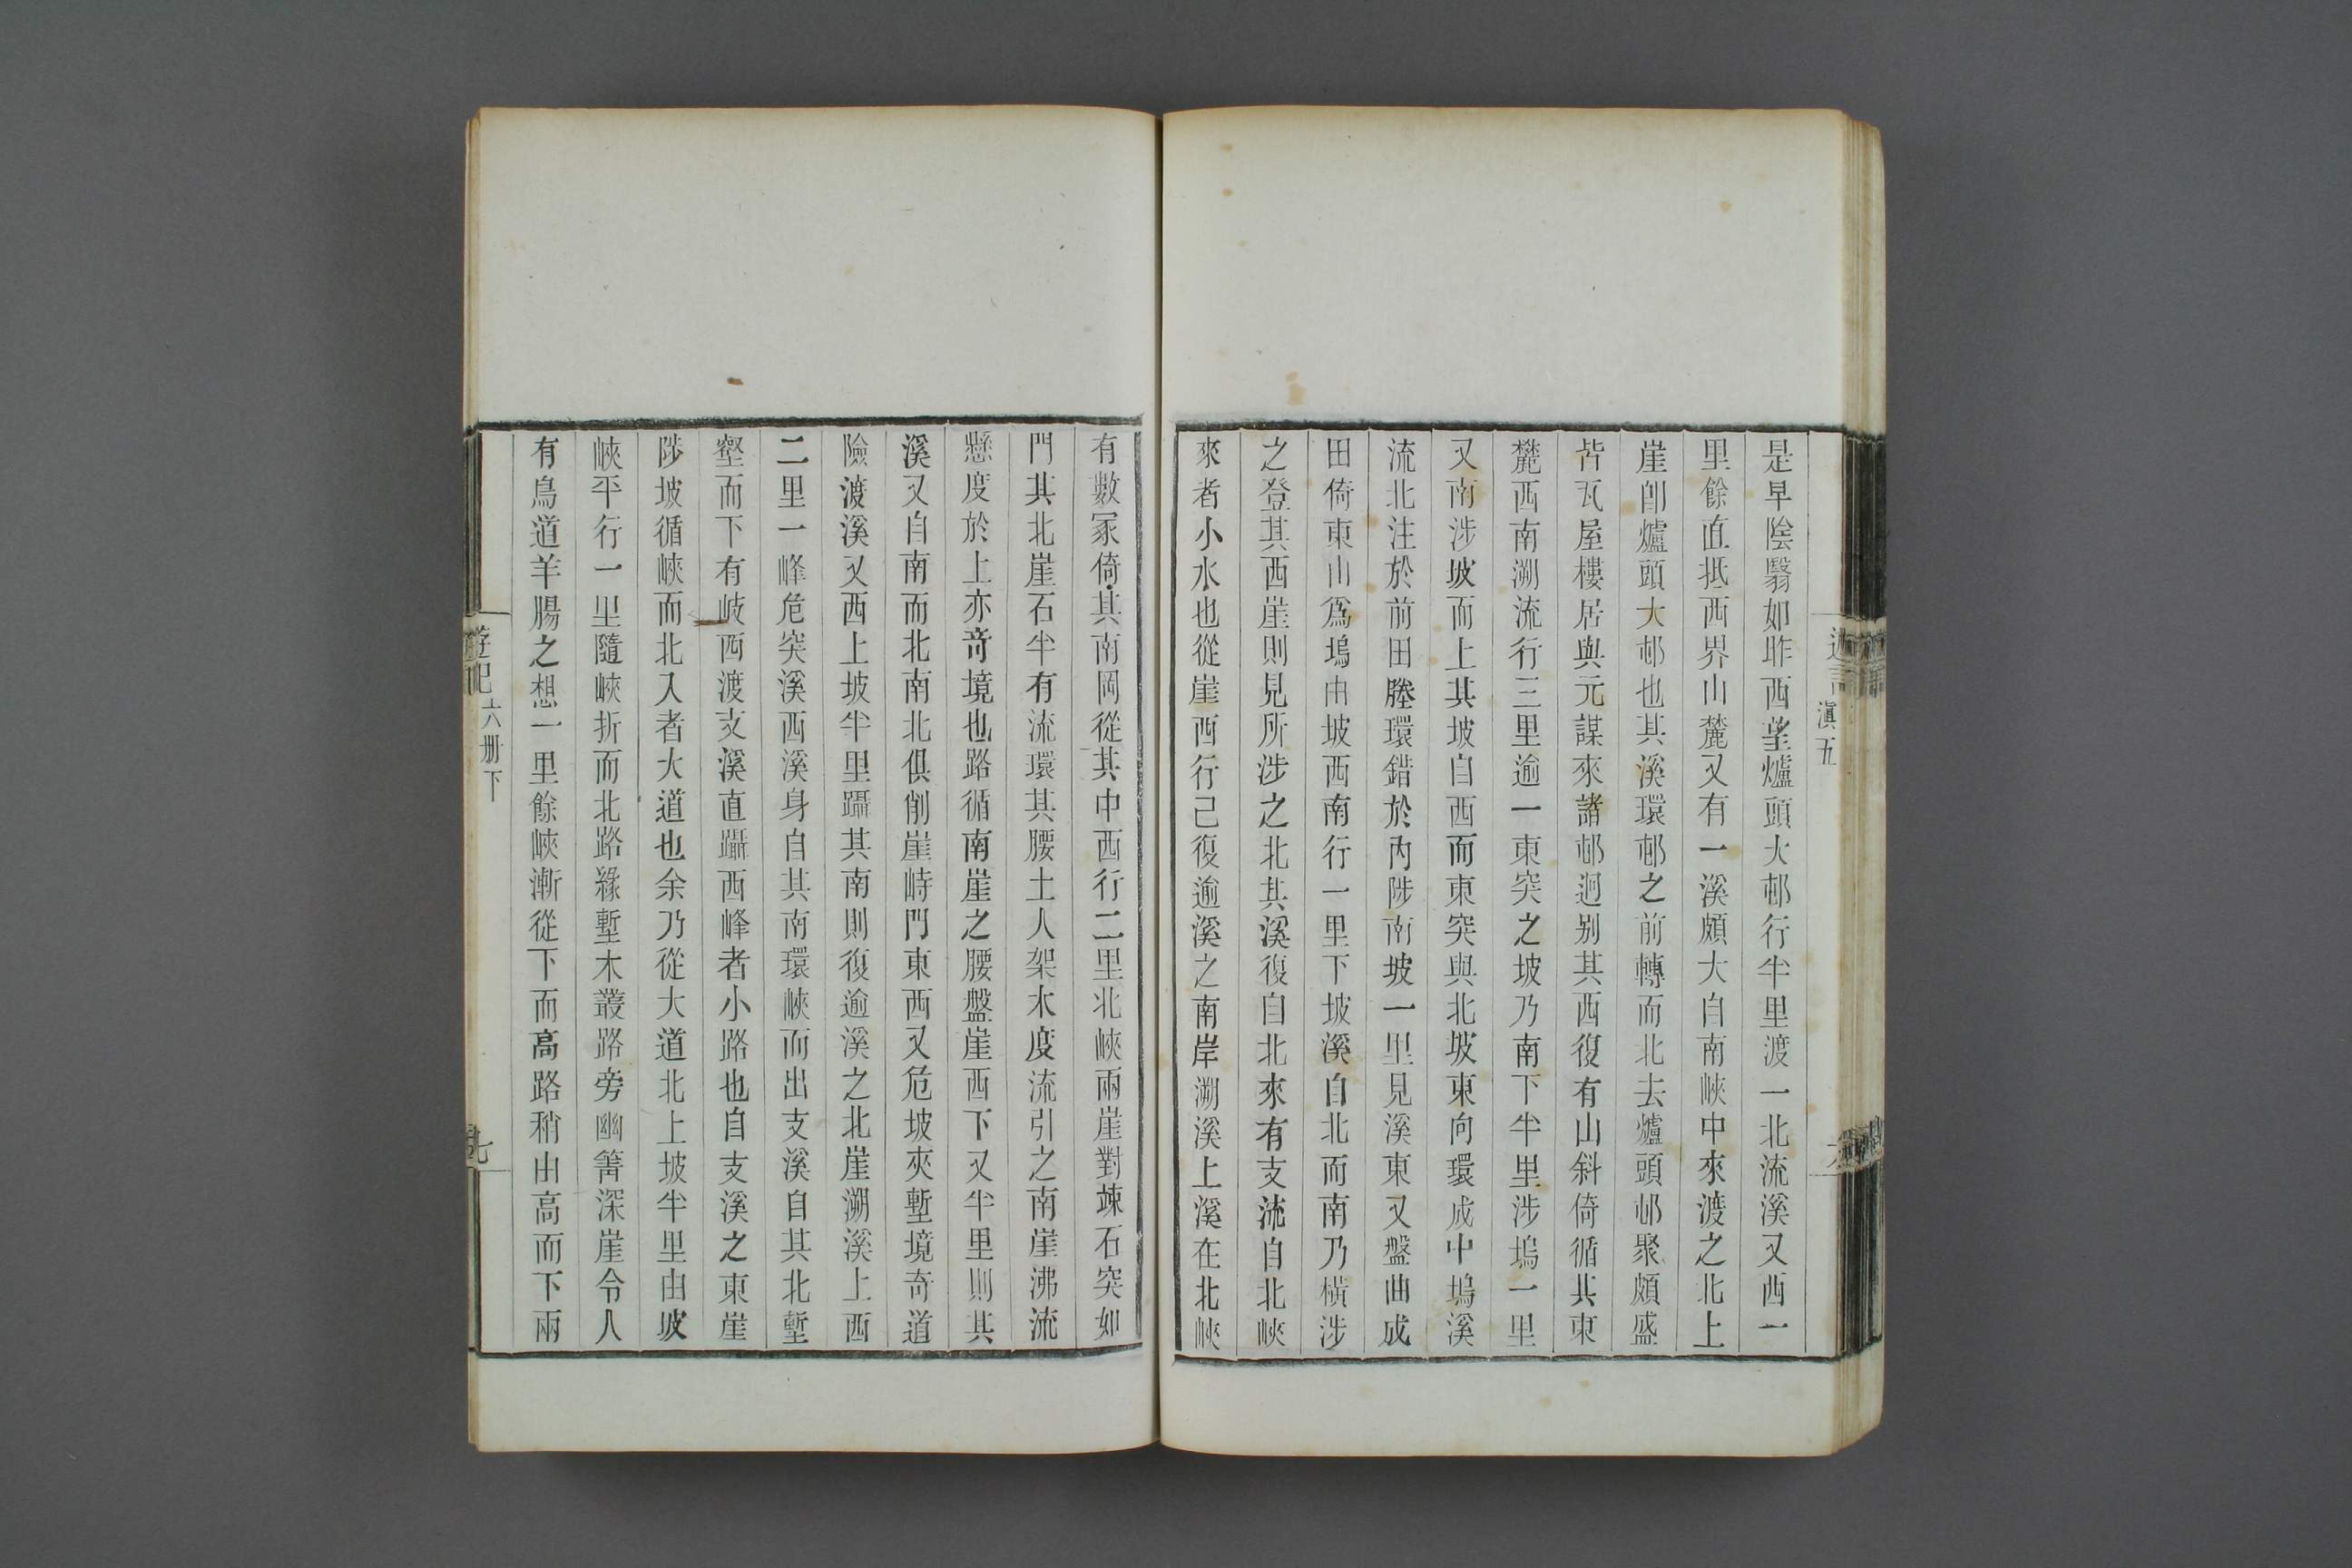 滇五
是早陰翳如昨西望爐頭大邨行半里渡一北流溪又西一
里餘直抵西界山麓又有一溪頗大自南峽中來渡之北上
崖卽爐頭大邨也其溪環邨之前轉而北去爐頭邨聚頗盛
皆瓦屋樓居與元謀來諸邨迥别其西復有山斜倚循其東
麓西南溯流行三里逾一東突之坡乃南下半里涉塢一里
又南涉坡而上其坡自西而東突與北坡東向環成中塢溪
流北注於前田塍環錯於內陟南坡一里見溪東又盤曲成
田倚東山爲塢由坡西南行一里下坡溪自北而南乃橫涉
之登其西崖則見所涉之北其溪復自北來有支流自北峽
來者小水也從崖西行已復逾溪之南岸溯溪上溪在北峽
有數家倚其南岡從其中西行二里北峽兩崖對竦石突如
門其北崖石半有流環其腰土人架木度流引之南崖沸流
懸度於上亦奇境也路循南崖之腰盤崖西下又半里則其
溪又自南而北南北俱削崖峙門東西又危坡夾塹境奇道
險渡溪又西上坡半里躡其南則復逾溪之北崖溯溪上西
二里一峰危突溪西溪身自其南環峽而出支溪自其北塹
壑而下有岐西渡支溪直躡西峰者小路也自支溪之東崖
陟坡循峽而北入者大道也余乃從大道北上坡半里由坡
峽平行一里隨峽折而北路緣塹木叢路旁幽箐深崖令人
有鳥道羊腸之想一里餘峽漸從下而高路稍由高而下兩
遊記 六册下 七